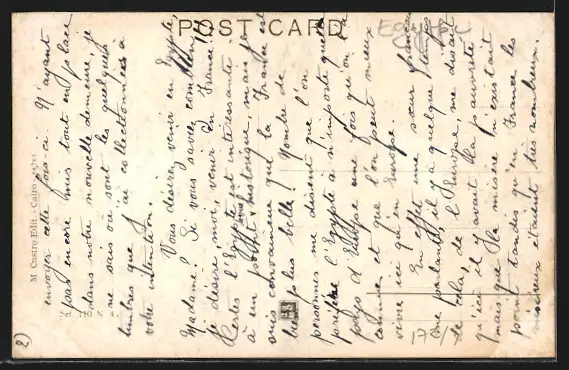 POST CARD
Egypte
M. Castro Edit. - Cairo
2)
envoyer cette fois-ci. N'ayant
pas encore mis tout en place
dans notre nouvelle demeure, je
ne sais où sont les quelques
timbres que j'ai collectionnés à
votre intention.
Vous désirez venir en Egypte,
Madame! Si vous saviez combien
je désire, moi, venir en France!
Certes l'Egypte est intéressante
à un point historique, mais je
suis convaincue que la France est
plus belle! Nombre de
personnes me disent que l'on
préfère l'Egypte à n'importe quel
pays d'Europe une fois qu'on l'a
connue et que l'on peut mieux
vivre ici qu'en Europe.
En effet une sœur française
me parlant, il y a quelque temps
de cela, de l'Europe, me disait
qu'ici il y avait de la pauvreté
mais que la misère n'existait
point tandis qu'en France les
miséreux étaient très nombreux.